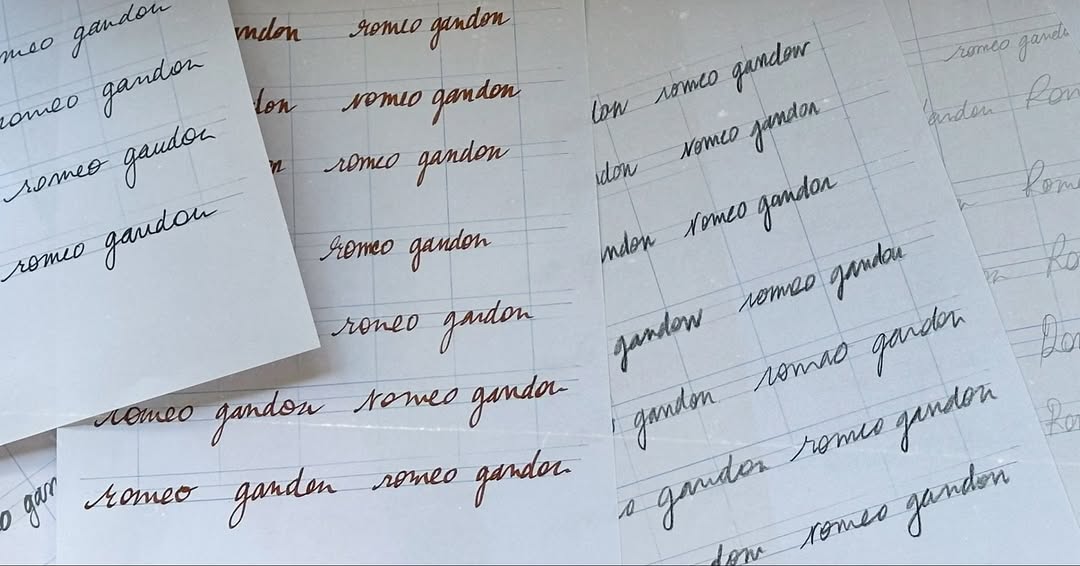 meo gandon
romeo gandon
romeo gaudon
romeo gandon
romeo gandon
romeo gandon
romeo gandon
romeo gandon
roneo gandon
romeo gandon romeo gandon
romeo gandon romeo gandon
romeo gandow
don romeo gandon
ndon romeo gandon
gandow romeo gandon
gandon romao gandon
o gandon romeo gandon
don romeo gandon
o gan
romeo gand
andon Rom
Rome
Ro
Ro